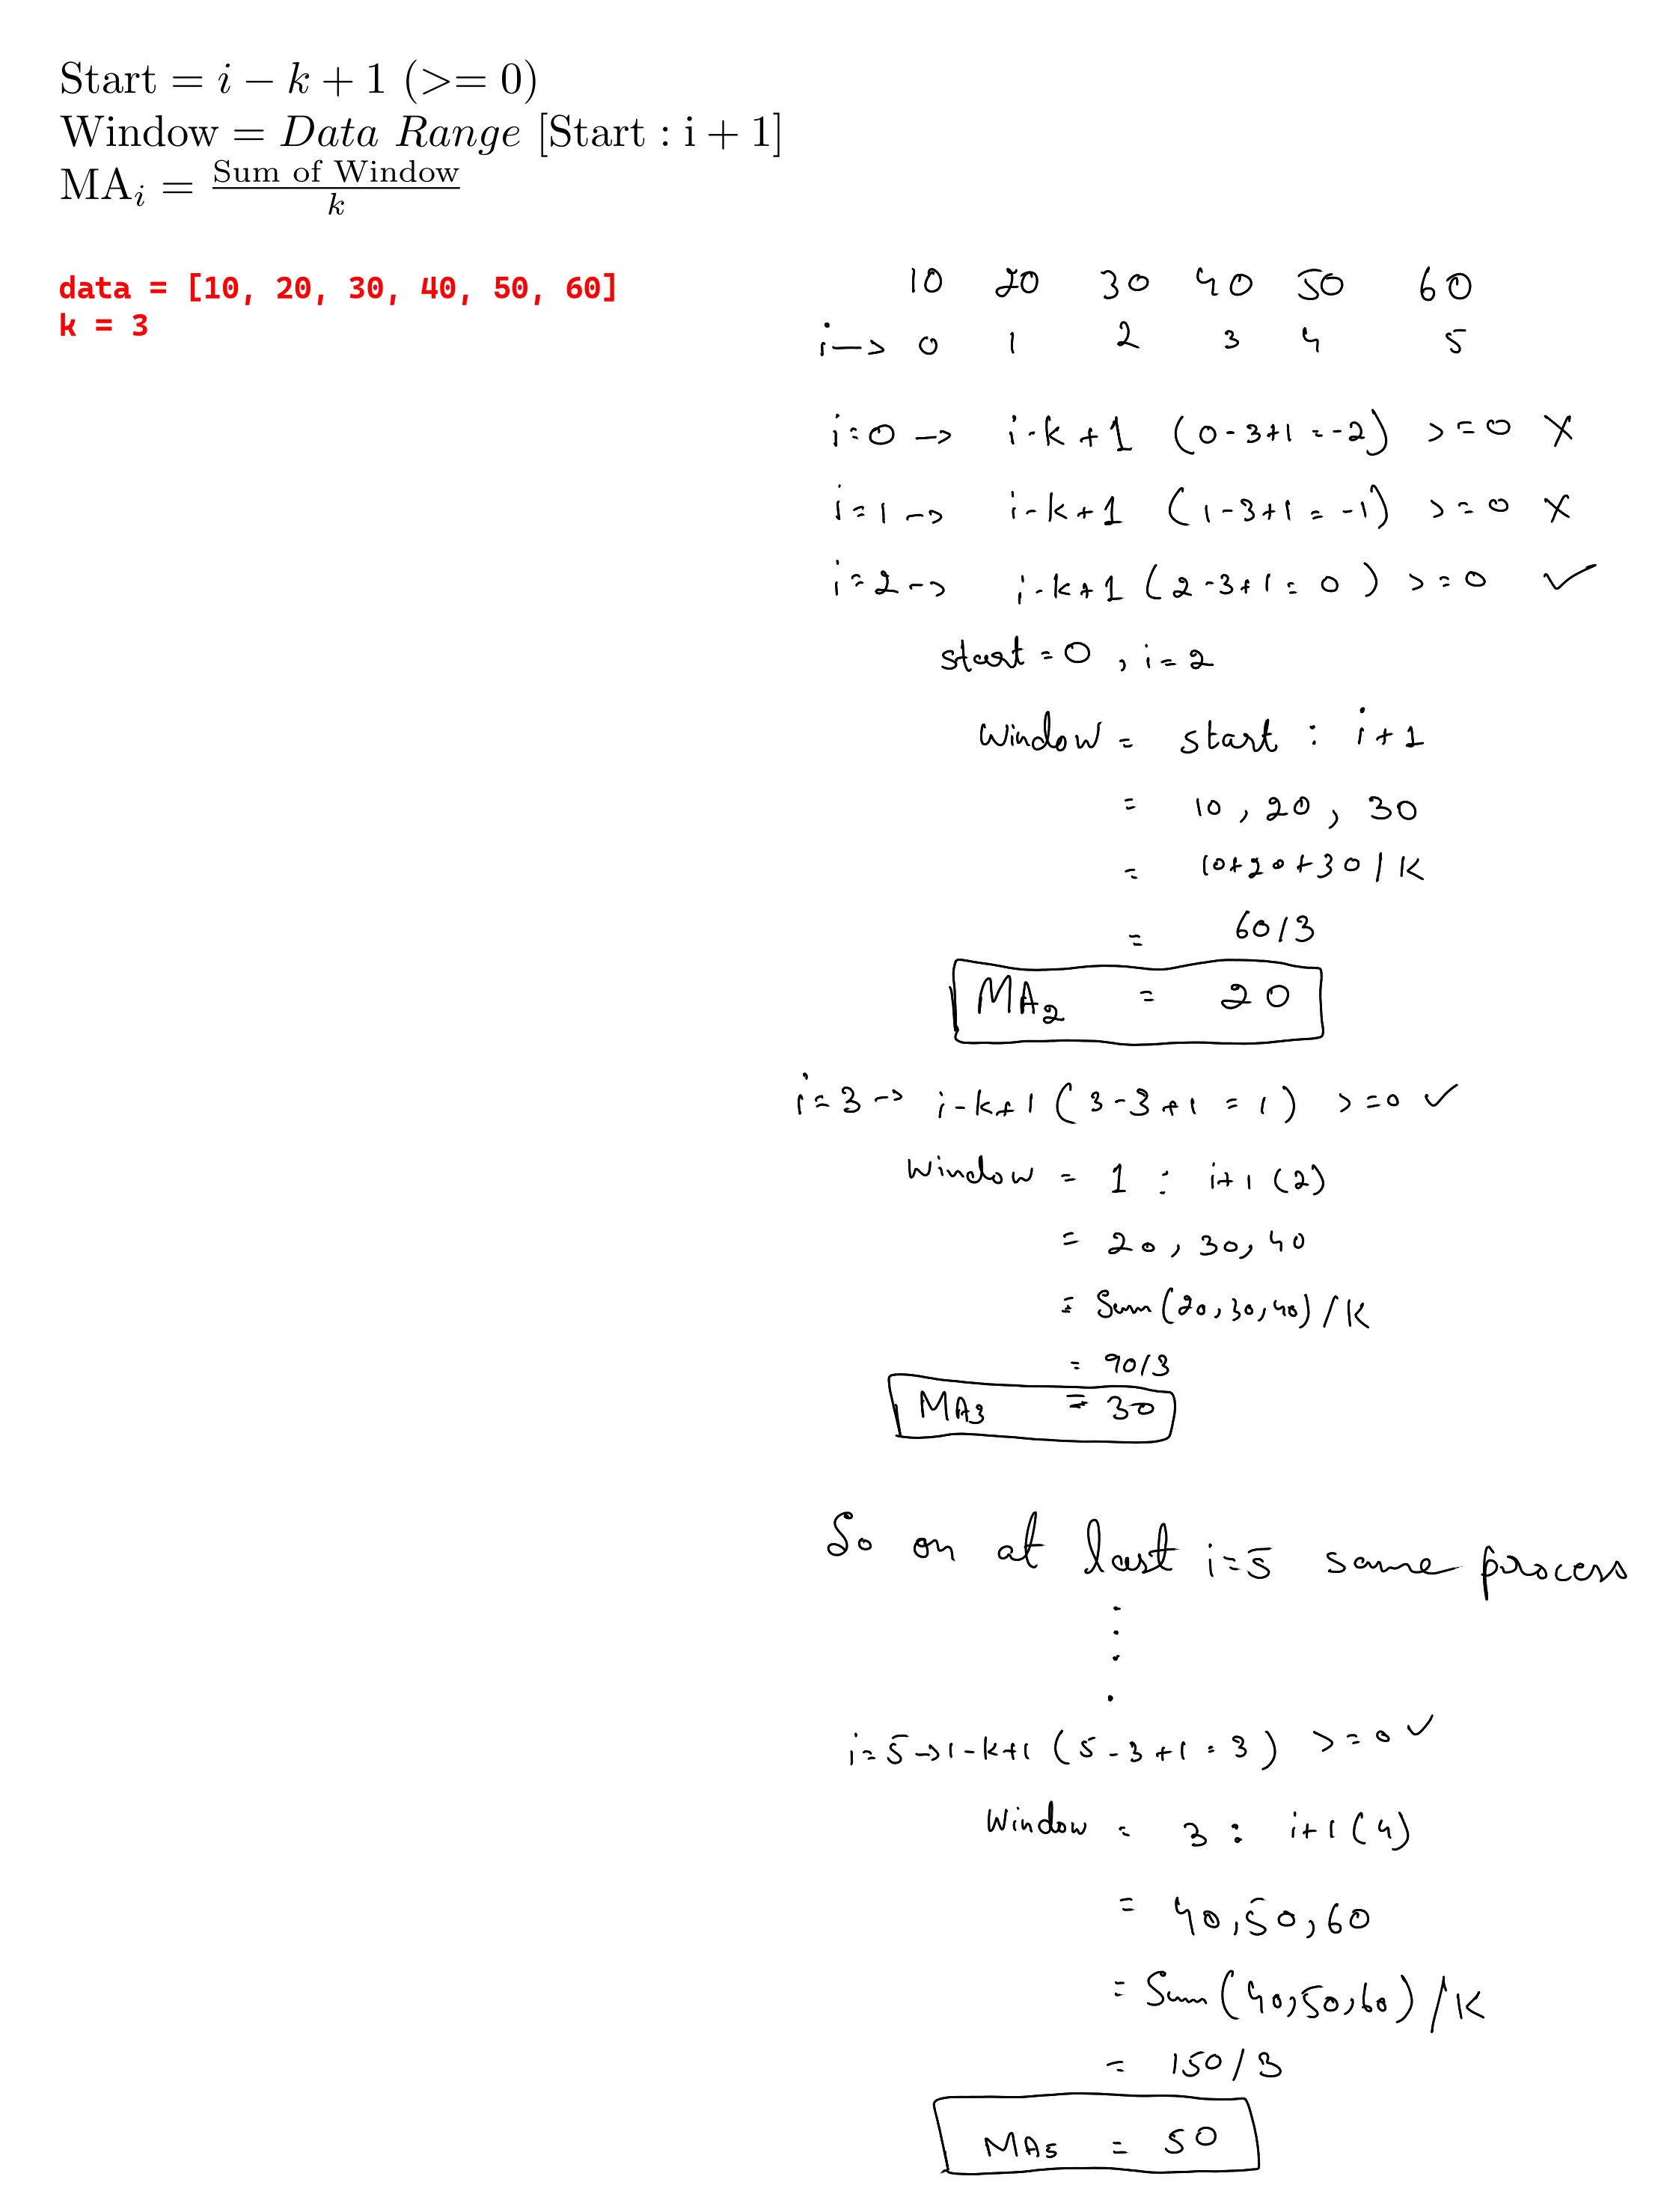 Start = i − k + 1 (>= 0)
Window = Data Range [Start : i + 1]
MA_i = Sum of Window / k
data = [10, 20, 30, 40, 50, 60]
k = 3
10 20 30 40 50 60
i-> 0 1 2 3 4 5
i=0 -> i-k+1 (0-3+1=-2) >=0 X
i=1 -> i-k+1 (1-3+1=-1) >=0 X
i=2 -> i-k+1 (2-3+1=0) >=0 ✓
start=0, i=2
Window = start : i+1
= 10, 20, 30
= 10+20+30/K
= 60/3
MA2 = 20
i=3 -> i-k+1 (3-3+1=1) >=0 ✓
Window = 1 : i+1 (2)
= 20, 30, 40
= Sum(20,30,40)/K
= 90/3
MA3 = 30
So on at last i=5 same process
i=5->1-k+1 (5-3+1=3) >=0 ✓
Window = 3 : i+1(4)
= 40,50,60
= Sum(40,50,60)/K
= 150/3
MA5 = 50